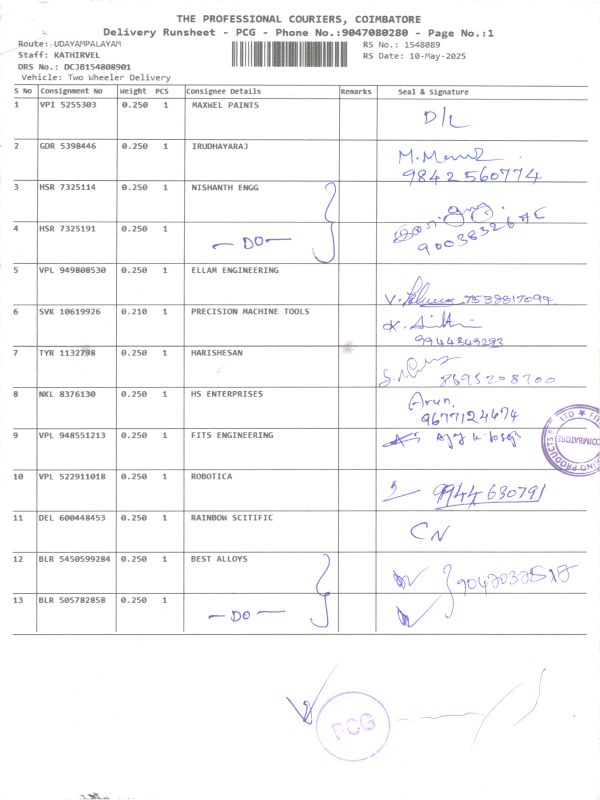 THE PROFESSIONAL COURIERS, COIMBATORE
Delivery Runsheet - PCG - Phone No.:9047080280 - Page No.:1
Route: UDAYAMPALAYAM
RS No.: 1548089
Staff: KATHIRVEL
RS Date: 10-May-2025
DRS No.: DCJB154808901
Vehicle: Two Wheeler Delivery
S No Consignment No Weight PCS Consignee Details Remarks Seal & Signature
1 VPI 5255303 0.250 1 MAXWEL PAINTS D/L
2 GDR 5398446 0.250 1 IRUDHAYARAJ
9842560774
3 HSR 7325114 0.250 1 NISHANTH ENGG
4 HSR 7325191 0.250 1 — DO —
5 VPL 949808530 0.250 1 ELLAM ENGINEERING 7538817094
6 SVK 10619926 0.210 1 PRECISION MACHINE TOOLS
9944849293
7 TYR 1132798 0.250 1 HARISHESAN
8695208700
8 NKL 8376130 0.250 1 HS ENTERPRISES Arun.
9677124474
9 VPL 948551213 0.250 1 FITS ENGINEERING
10 VPL 522911018 0.250 1 ROBOTICA 9944630791
11 DEL 600448453 0.250 1 RAINBOW SCITIFIC CN
12 BLR 5450599284 0.250 1 BEST ALLOYS
13 BLR 505782858 0.250 1 — DO —
PCG